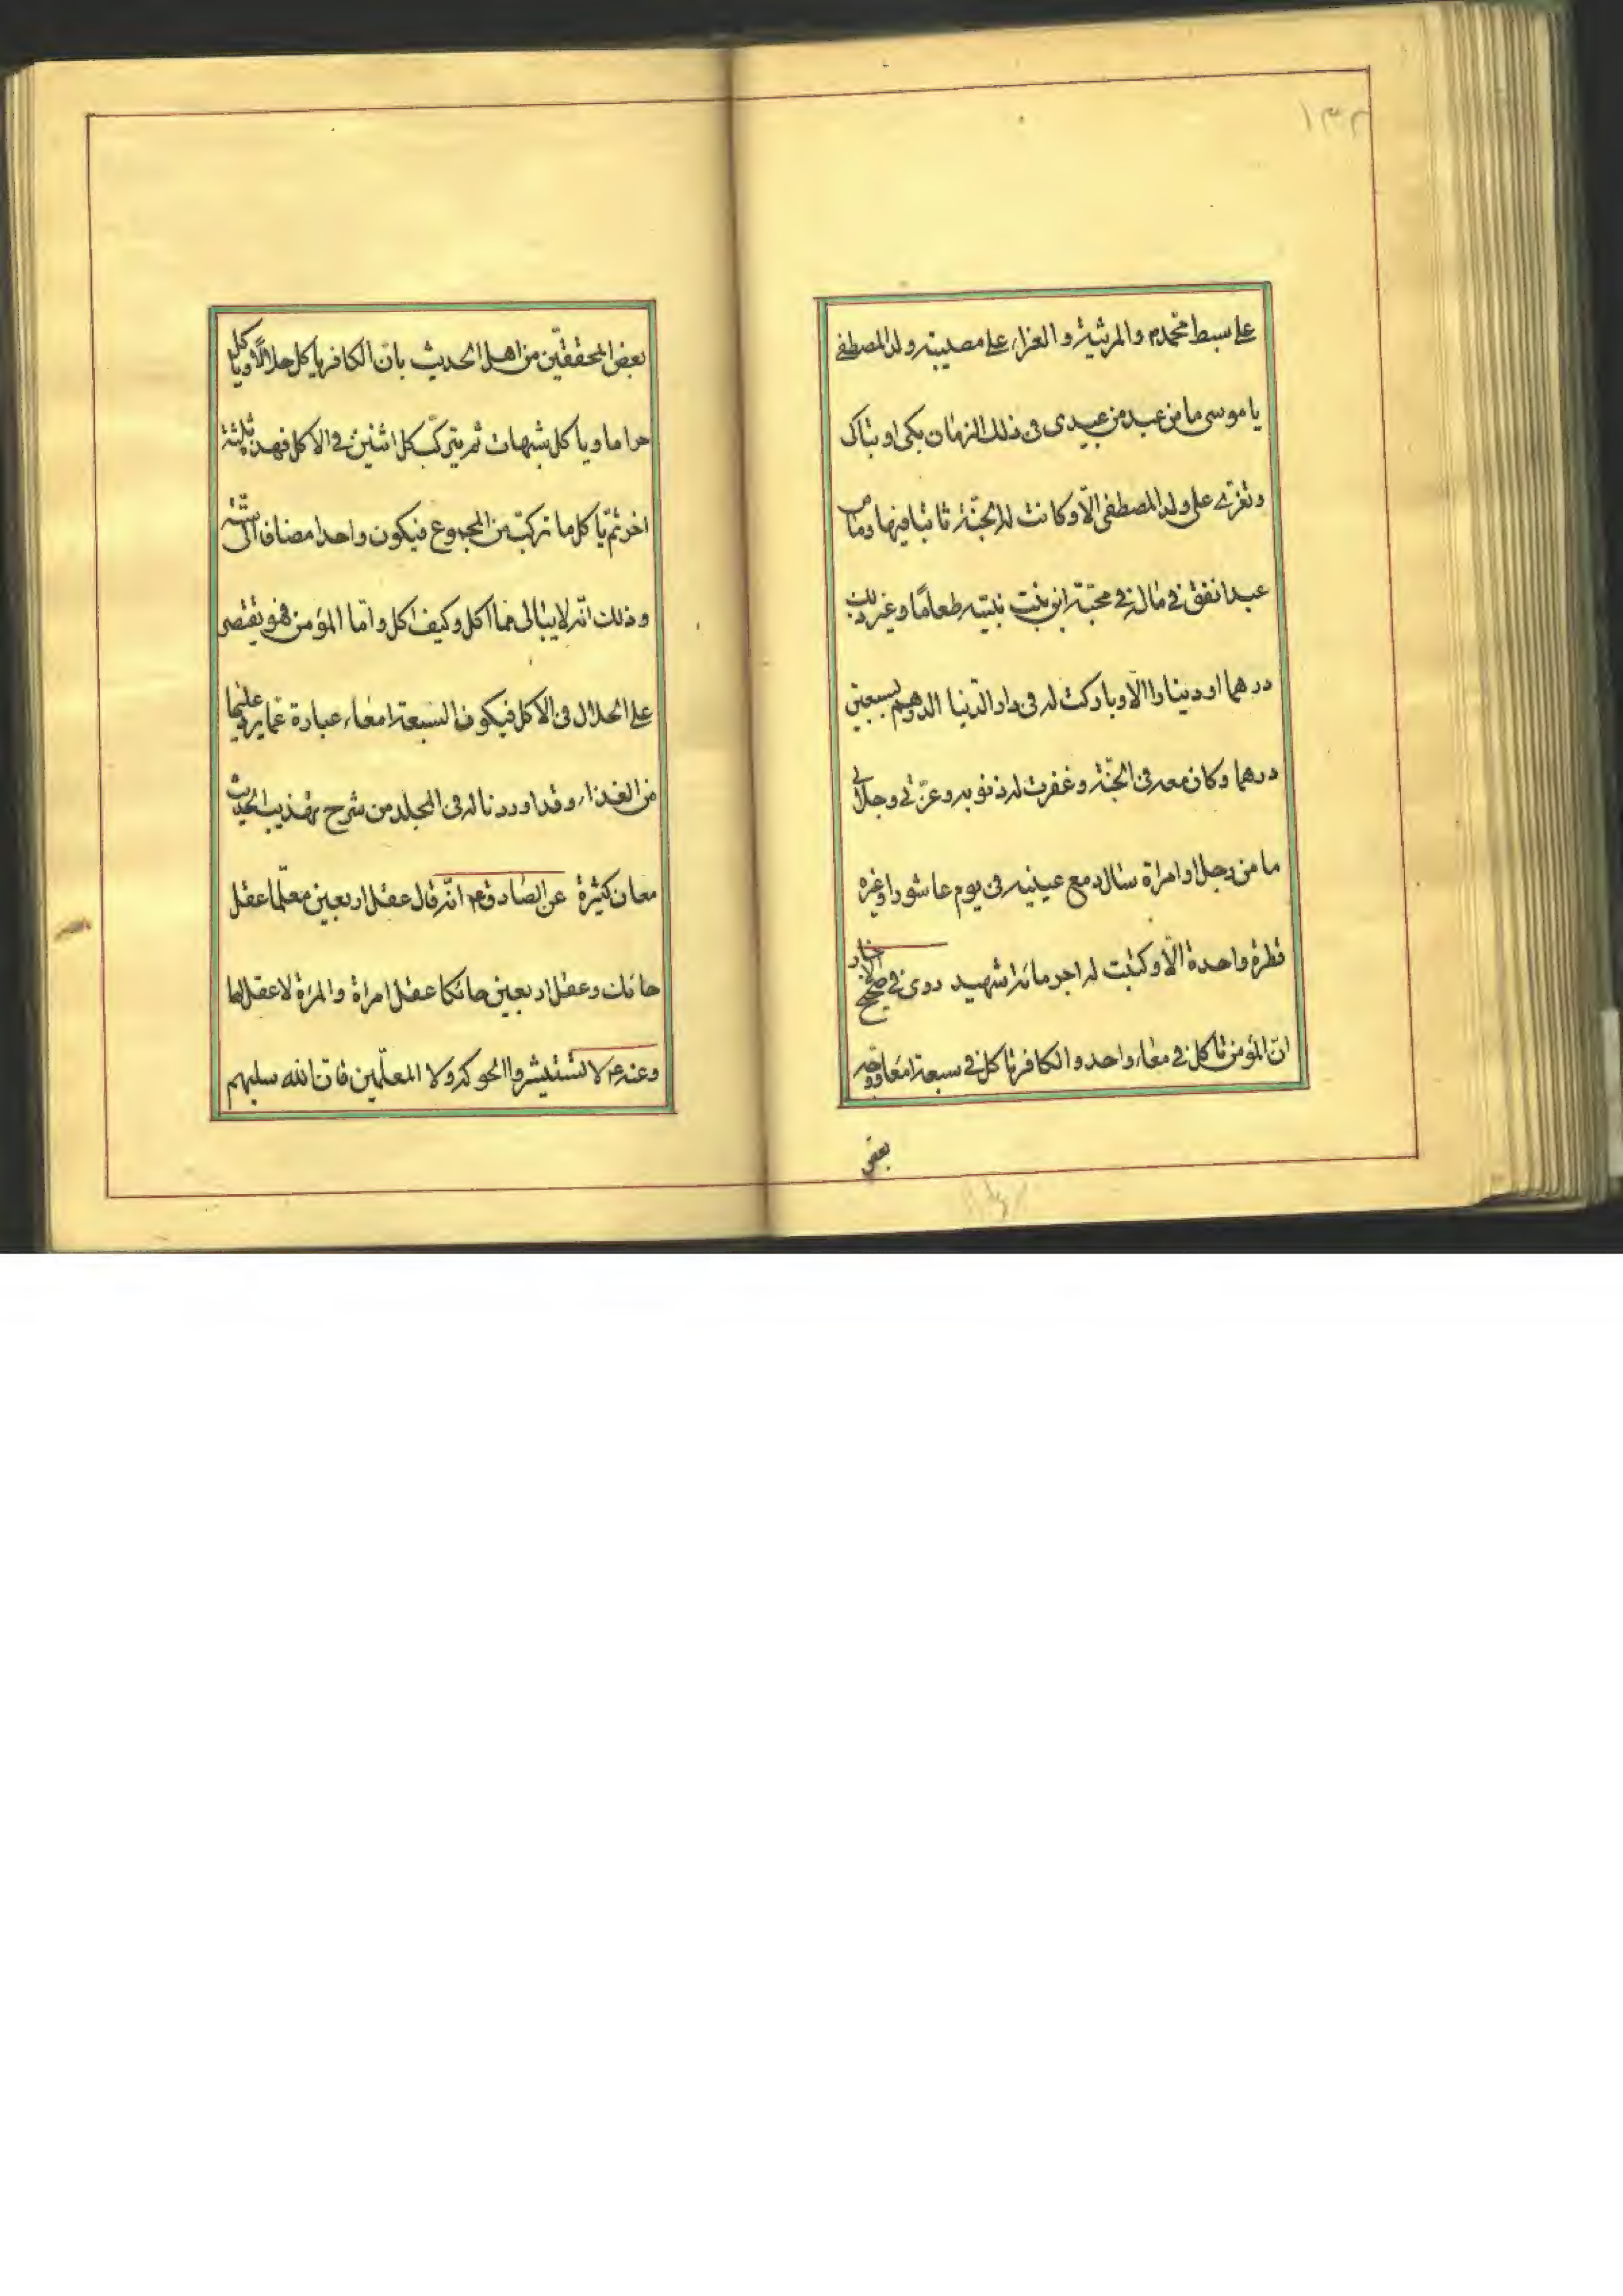 ١٣٢
على سبط محمد ص والمرثية والعزاء على مصيبته ولد المصطفى
يا موسى ما من عبد من عبيدى فى ذلك الزمان بكى او تباكى
وتعزى على ولد المصطفى الا وكانت له الجنة ثابتا فيها وما من
عبد انفق فى ماله فى محبة ابن بنت نبيه طعاما وغير ذلك
درهما او دينارا الا وباركت له فى دار الدنيا الدرهم بسبعين
درهما وكان معه فى الجنة وغفرت له ذنوبه وعزتى وجلالى
ما من رجل او امراة سال دمع عينيه فى يوم عاشورا وغيره
قطرة واحدة الا وكتبت له اجر مائة شهيد روى فى صحيح الاخبار
ان المؤمن ياكل فى معاء واحد والكافر ياكل فى سبعة امعا ووجه
بعض
بعض المحققين من اهل الحديث بان الكافر ياكل حلالا وياكل
حراما وياكل شبهات ثم يتركب كل اثنين فى الاكل فهذه ثلثة
اخر ثم ياكل ما تركب من المجموع فيكون واحدا مضافا الى ستة
وذلك انه لا يبالى مما اكل وكيف اكل واما المؤمن فهو يقتصر
على الحلال فى الاكل فيكون السبعة امعاء عبارة عما يرد عليها
من الغذاء وقد اوردنا له فى المجلد من شرح تهذيب الحديث
معان كثيرة عن الصادق ع انه قال عقل اربعين معلما عقل
حائك وعقل اربعين حائكا عقل امراة والمرة لا عقل لها
وعنه ع لا تستشيروا الحوكة ولا المعلمين فان الله سلبهم